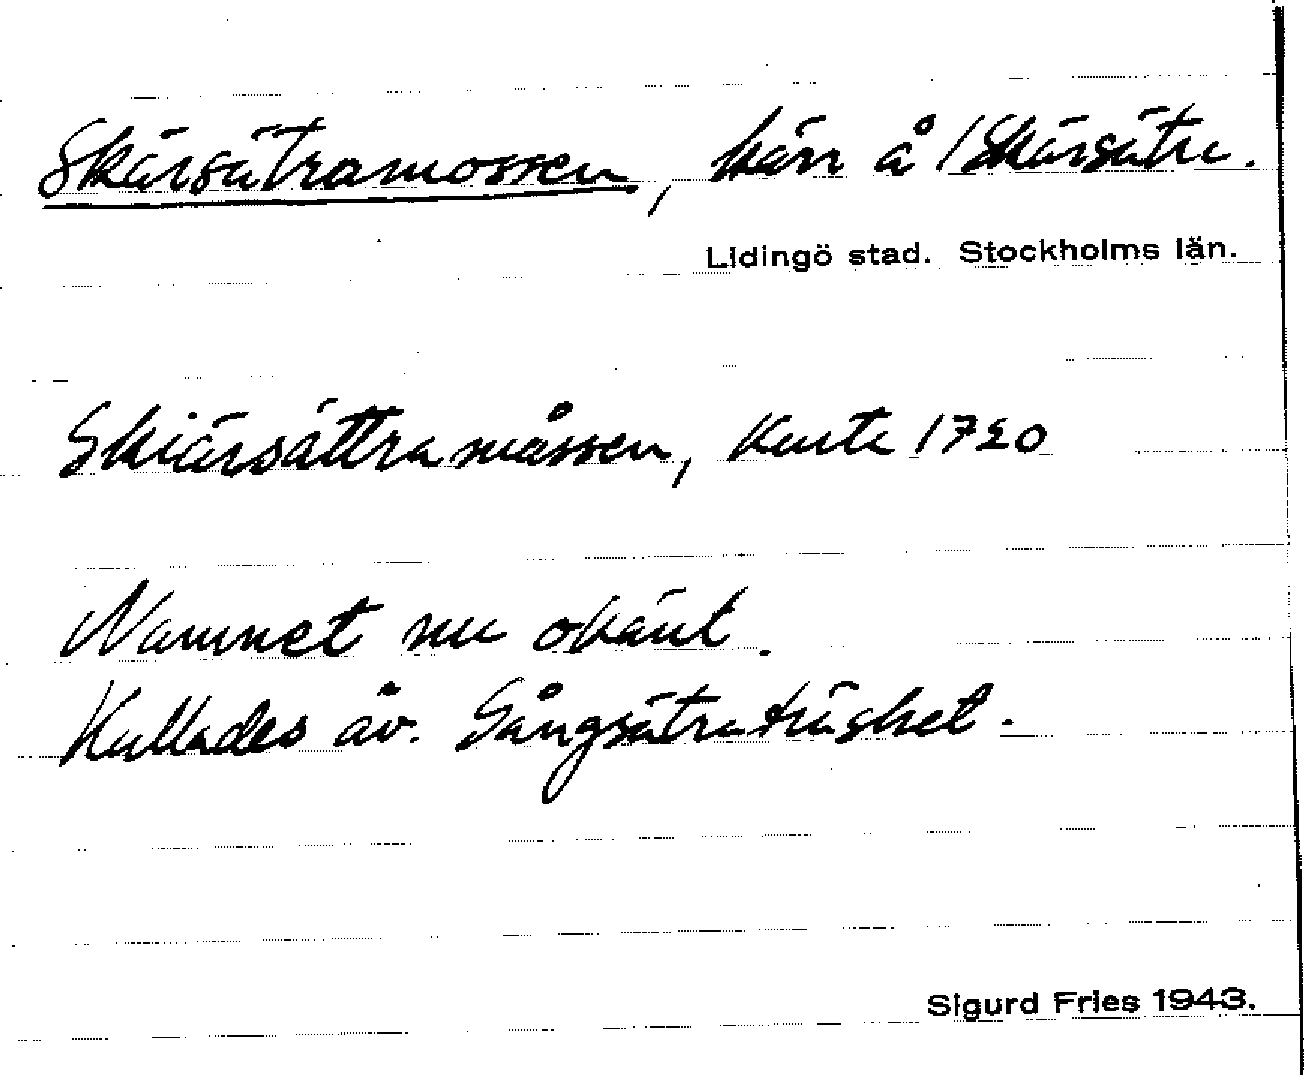 Skärsätramossen, kärr å 1 Skärsätra.
Lidingö stad. Stockholms län.
Skiärsättra måssen, Karta 1720
Namnet nu okänt.
Kallades äv. Gångsätraträsket.
Sigurd Fries 1943.